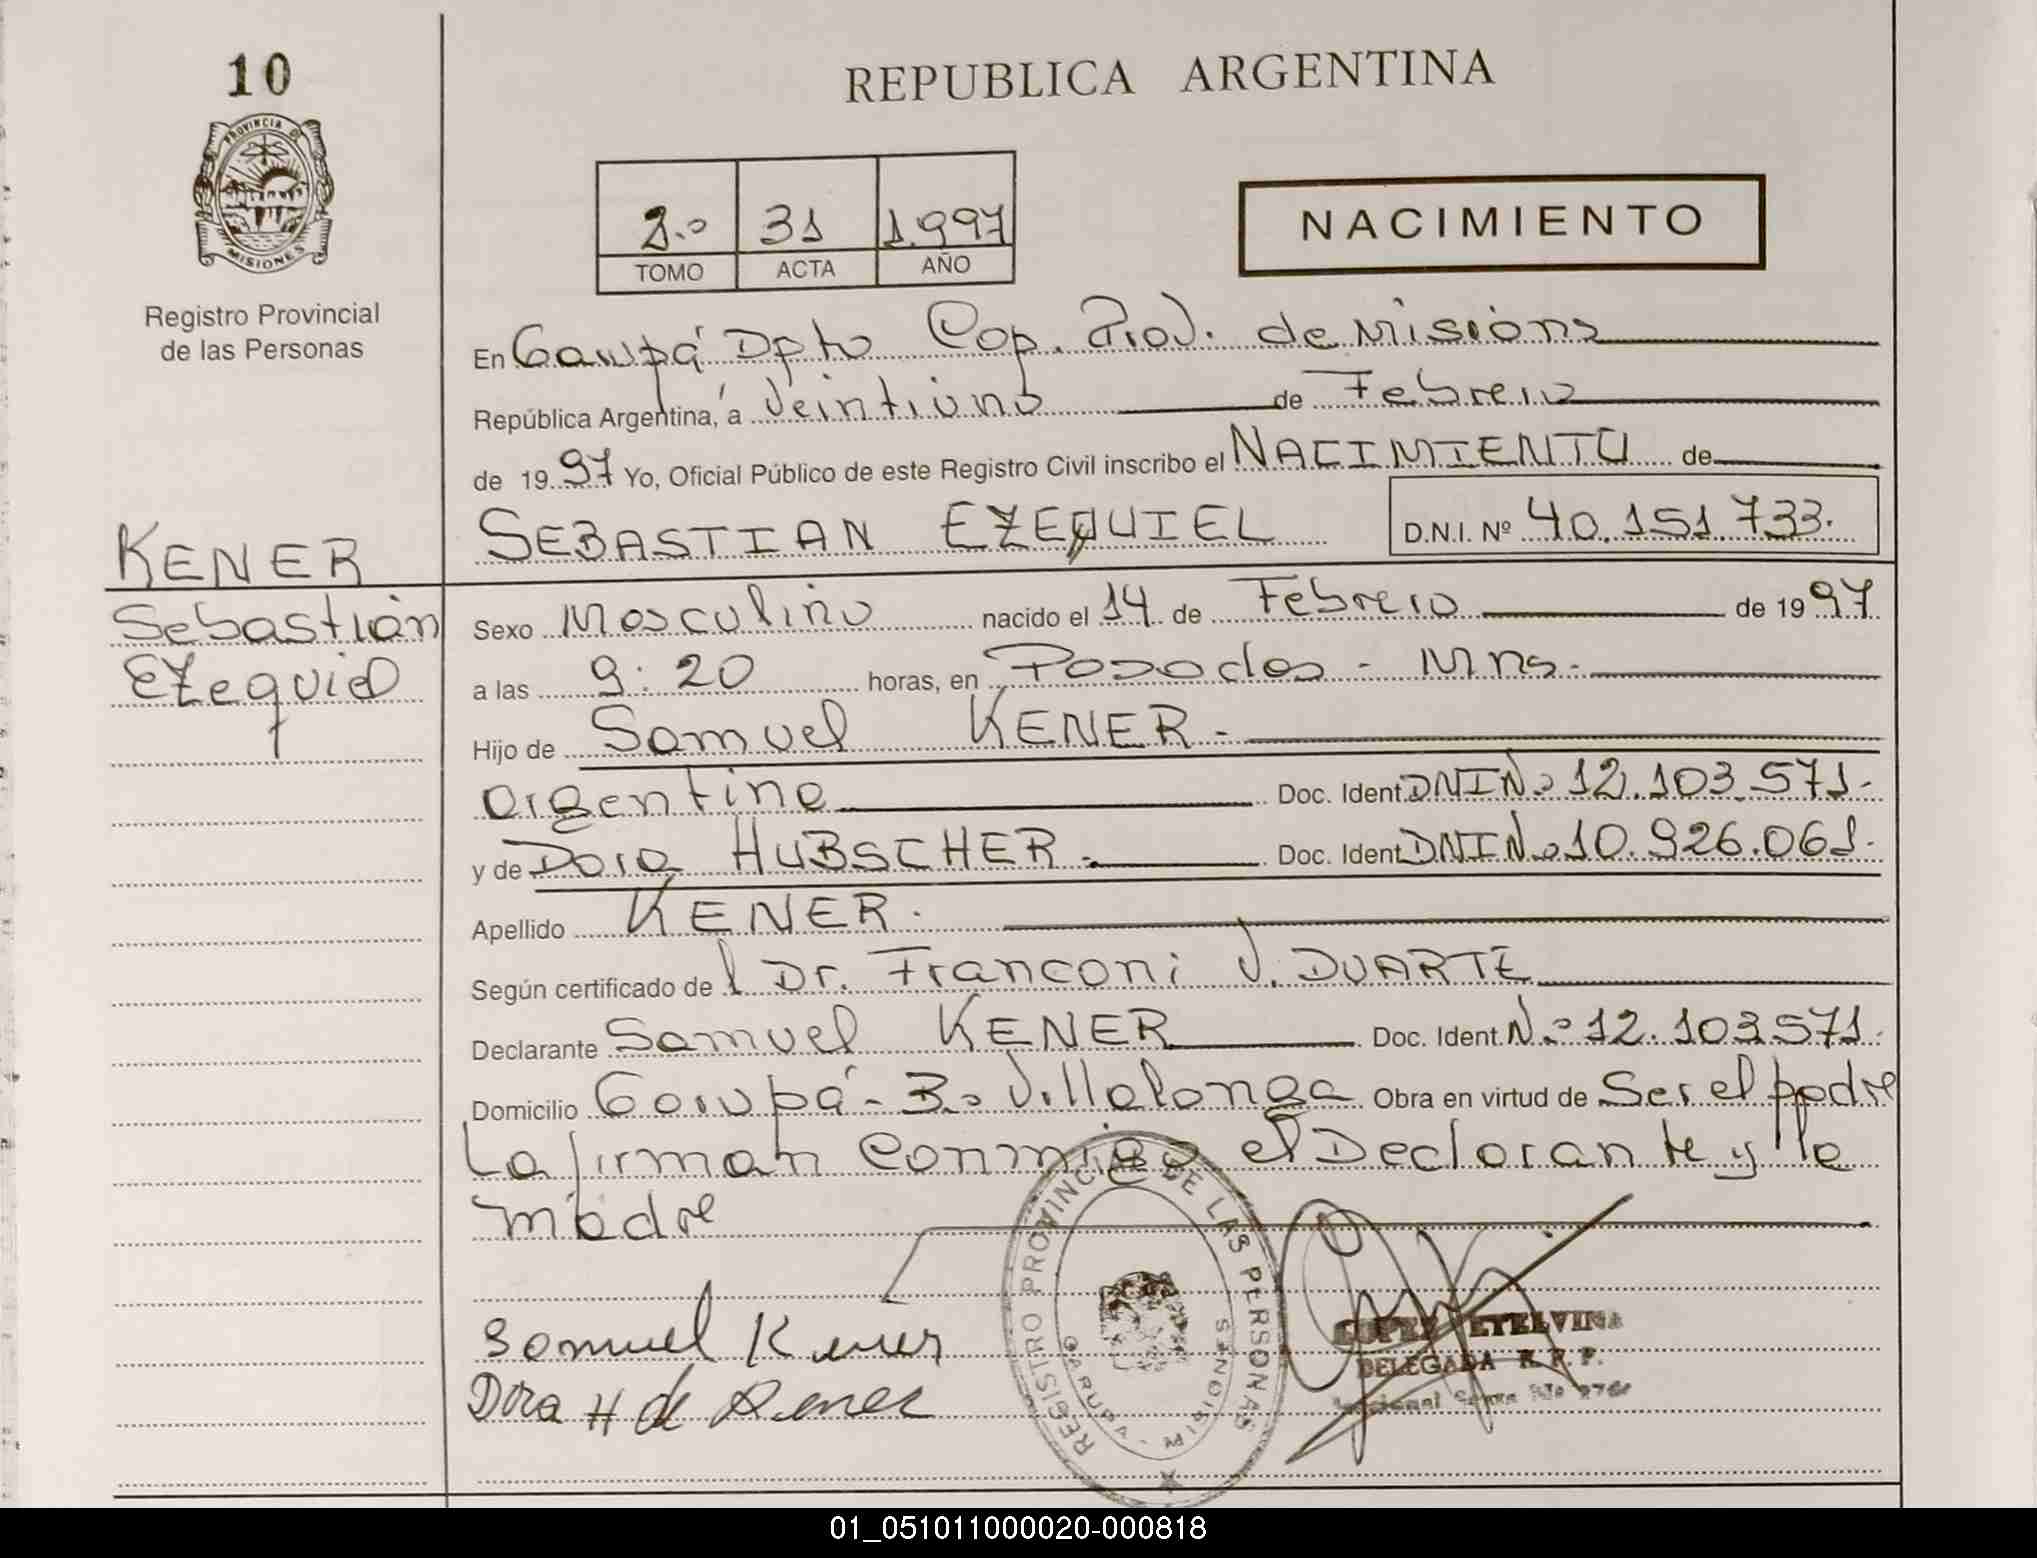 10
PROVINCIA DE
MISIONES
Registro Provincial
de las Personas
REPUBLICA ARGENTINA
2.º 31 1.997
TOMO ACTA AÑO
NACIMIENTO
En Garupá Dpto Cap. Prov. de Misions
República Argentina, a Veintiuno de Febrero
de 1997 Yo, Oficial Público de este Registro Civil inscribo el NACIMIENTO de
SEBASTIAN EZEQUIEL D.N.I. Nº 40.151.733.
KENER
Sebastián
Ezequiel
Sexo Masculino nacido el 14 de Febrero de 1997
a las 9:20 horas, en Posadas - Mns.
Hijo de Samuel KENER -
argentino Doc. Ident. DNI Nº 12.103.571.
y de Dora HUBSCHER - Doc. Ident. DNI Nº 10.926.061.
Apellido KENER.
Según certificado del Dr. Franconi J. DUARTE
Declarante Samuel KENER Doc. Ident. Nº 12.103.571.
Domicilio Garupá - Bº Villalonga Obra en virtud de Ser el padre
La firman conmigo el Declarante y la
madre
Samuel Kener
Dora H de Kener
REGISTRO PROVINCIAL DE LAS PERSONAS
GARUPA - MISIONES
LOPEZ ETELVINA
DELEGADA R. P. P.
01_051011000020-000818